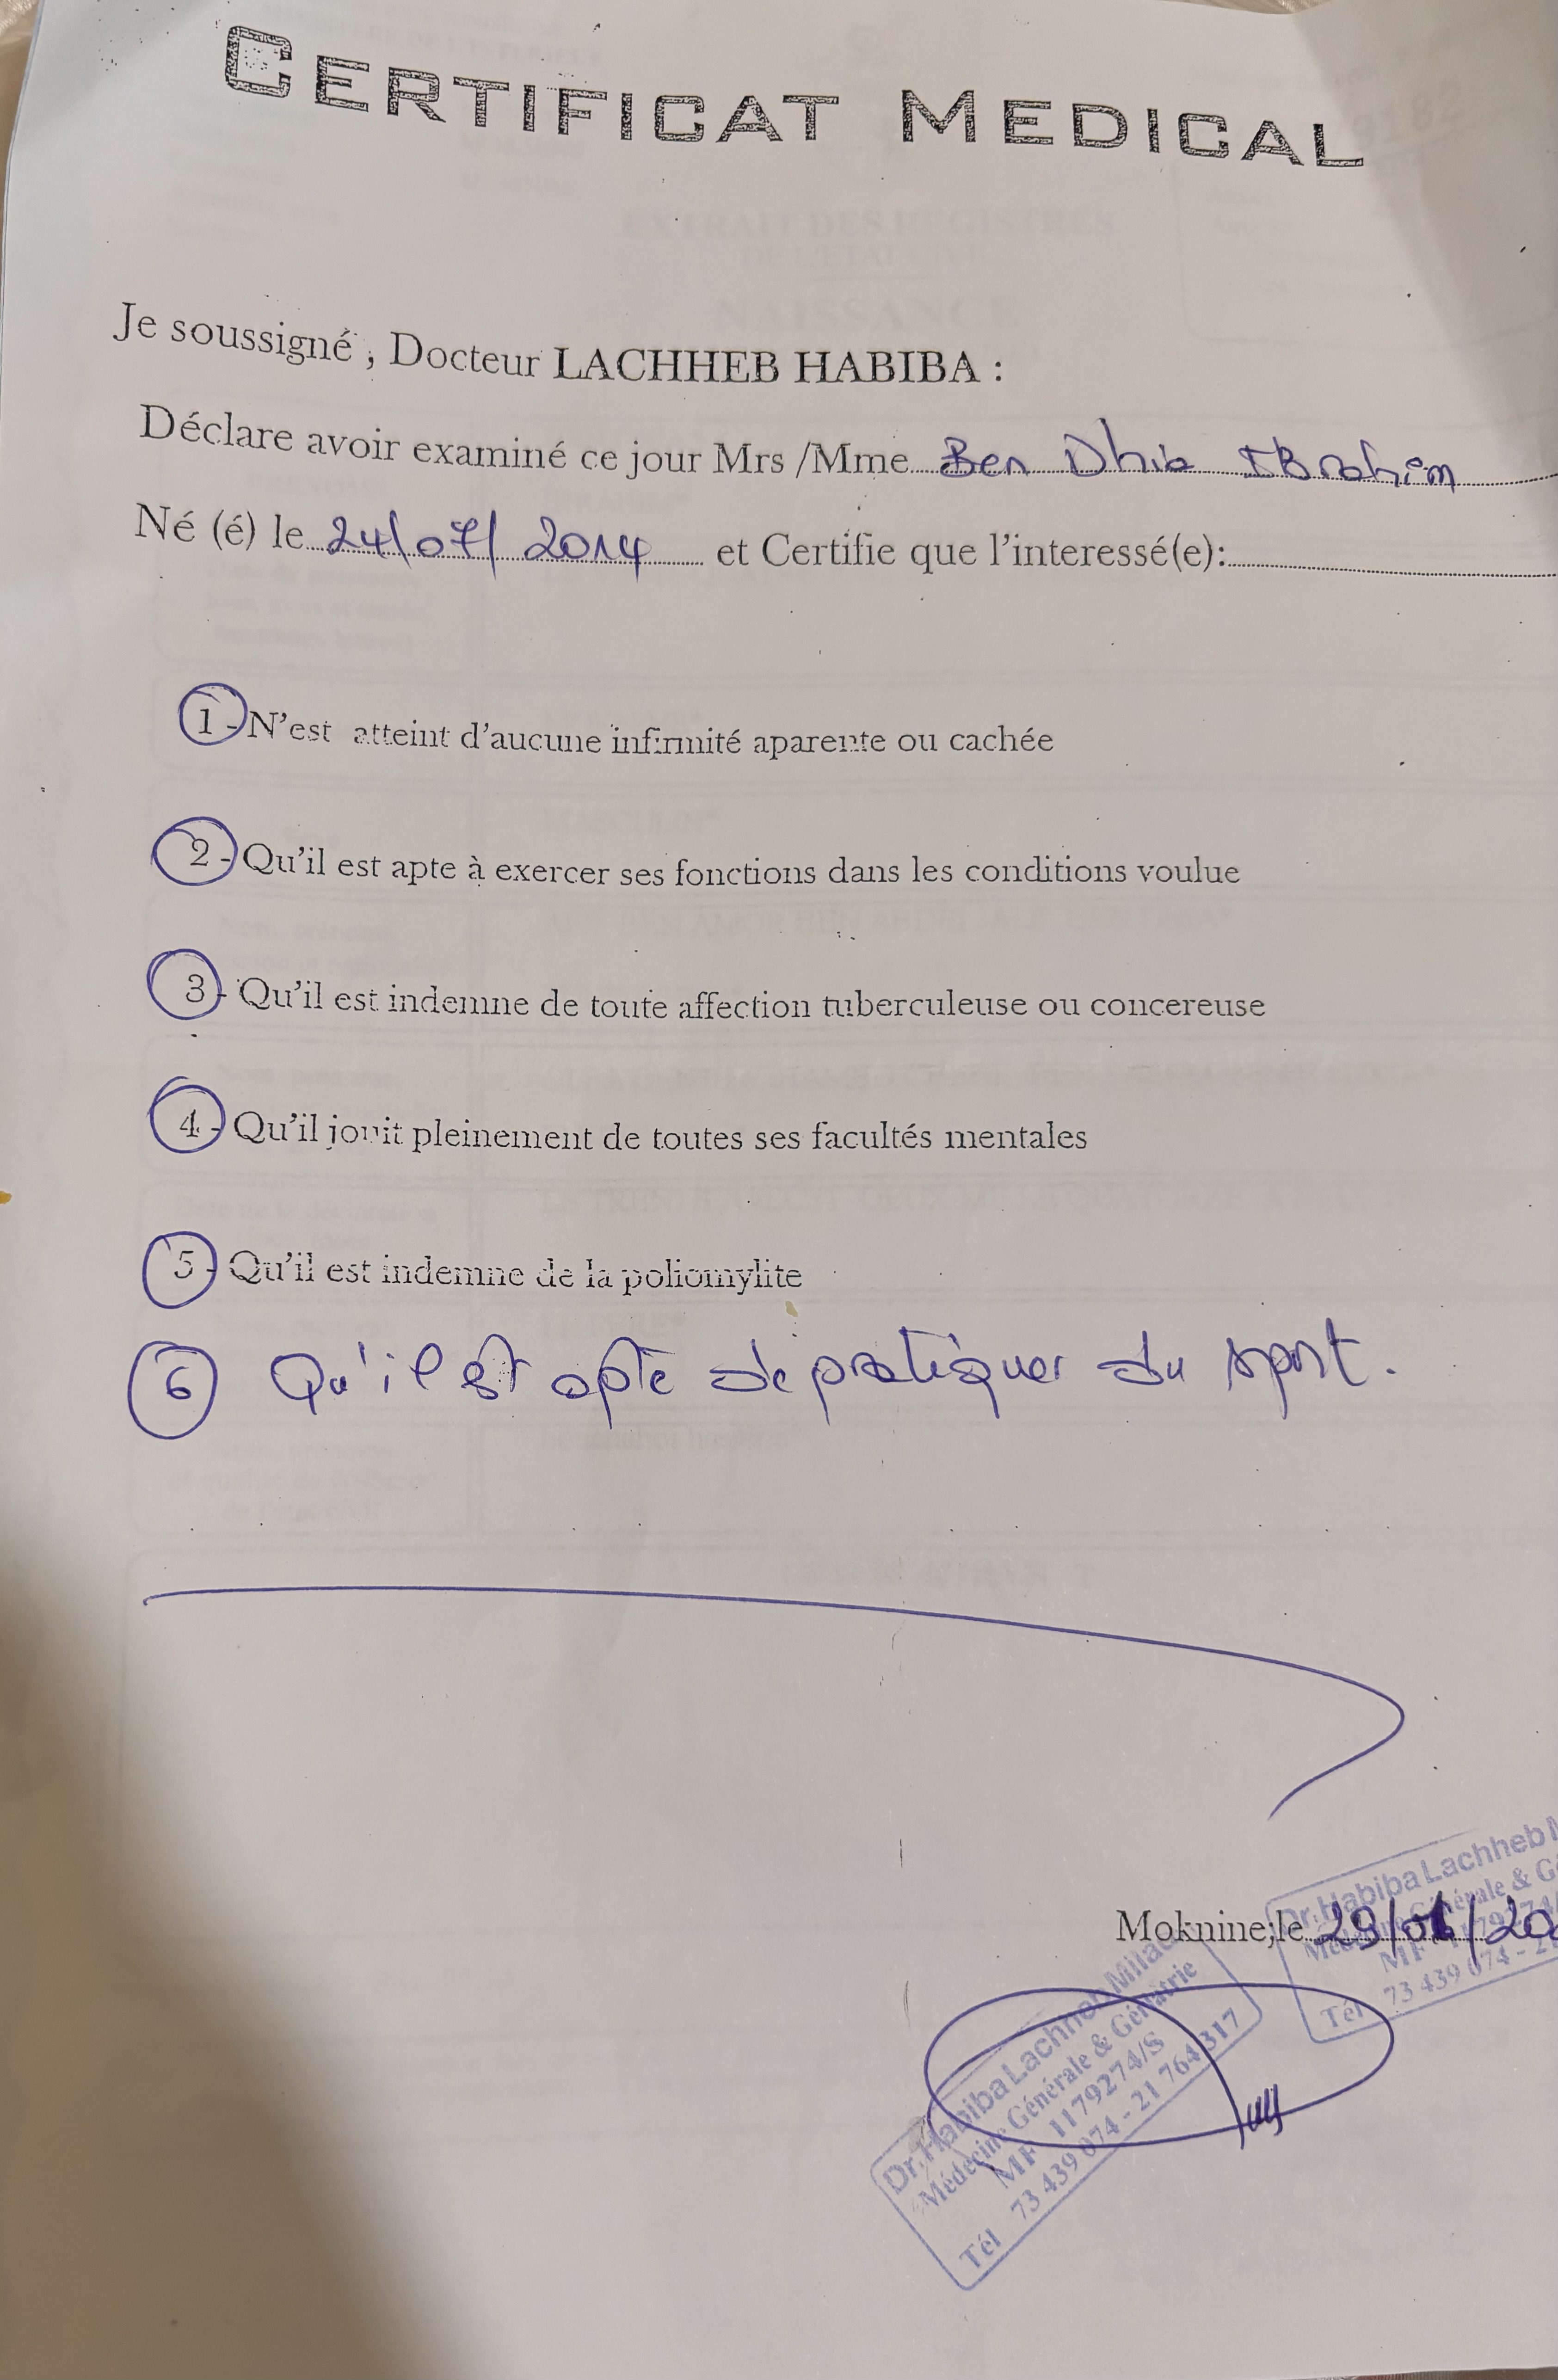 CERTIFICAT MEDICAL
Je soussigné , Docteur LACHHEB HABIBA :
Déclare avoir examiné ce jour Mrs /Mme Ben Dhia IBrahim
Né (é) le 24/07/2014 et Certifie que l'interessé(e):
1 - N'est atteint d'aucune infirmité aparente ou cachée
2 - Qu'il est apte à exercer ses fonctions dans les conditions voulue
3 - Qu'il est indemne de toute affection tuberculeuse ou concereuse
4 - Qu'il jouit pleinement de toutes ses facultés mentales
5 - Qu'il est indemne de la poliomylite
6 Qu'il est apte de pratiquer du sport.
Moknine;le 29/01/20
Dr. Habiba Lachheb
Médecine Générale &
MF 1179274/
Tél 73 439 074 - 21
Dr. Habiba Lachheb Milad
Médecine Générale & Gériatrie
MF 1179274/S
Tél 73 439 074 - 21 764 317
EXTRAIT DES REGISTRES
DE L'ETAT CIVIL
NAISSANCE
MASCULIN*